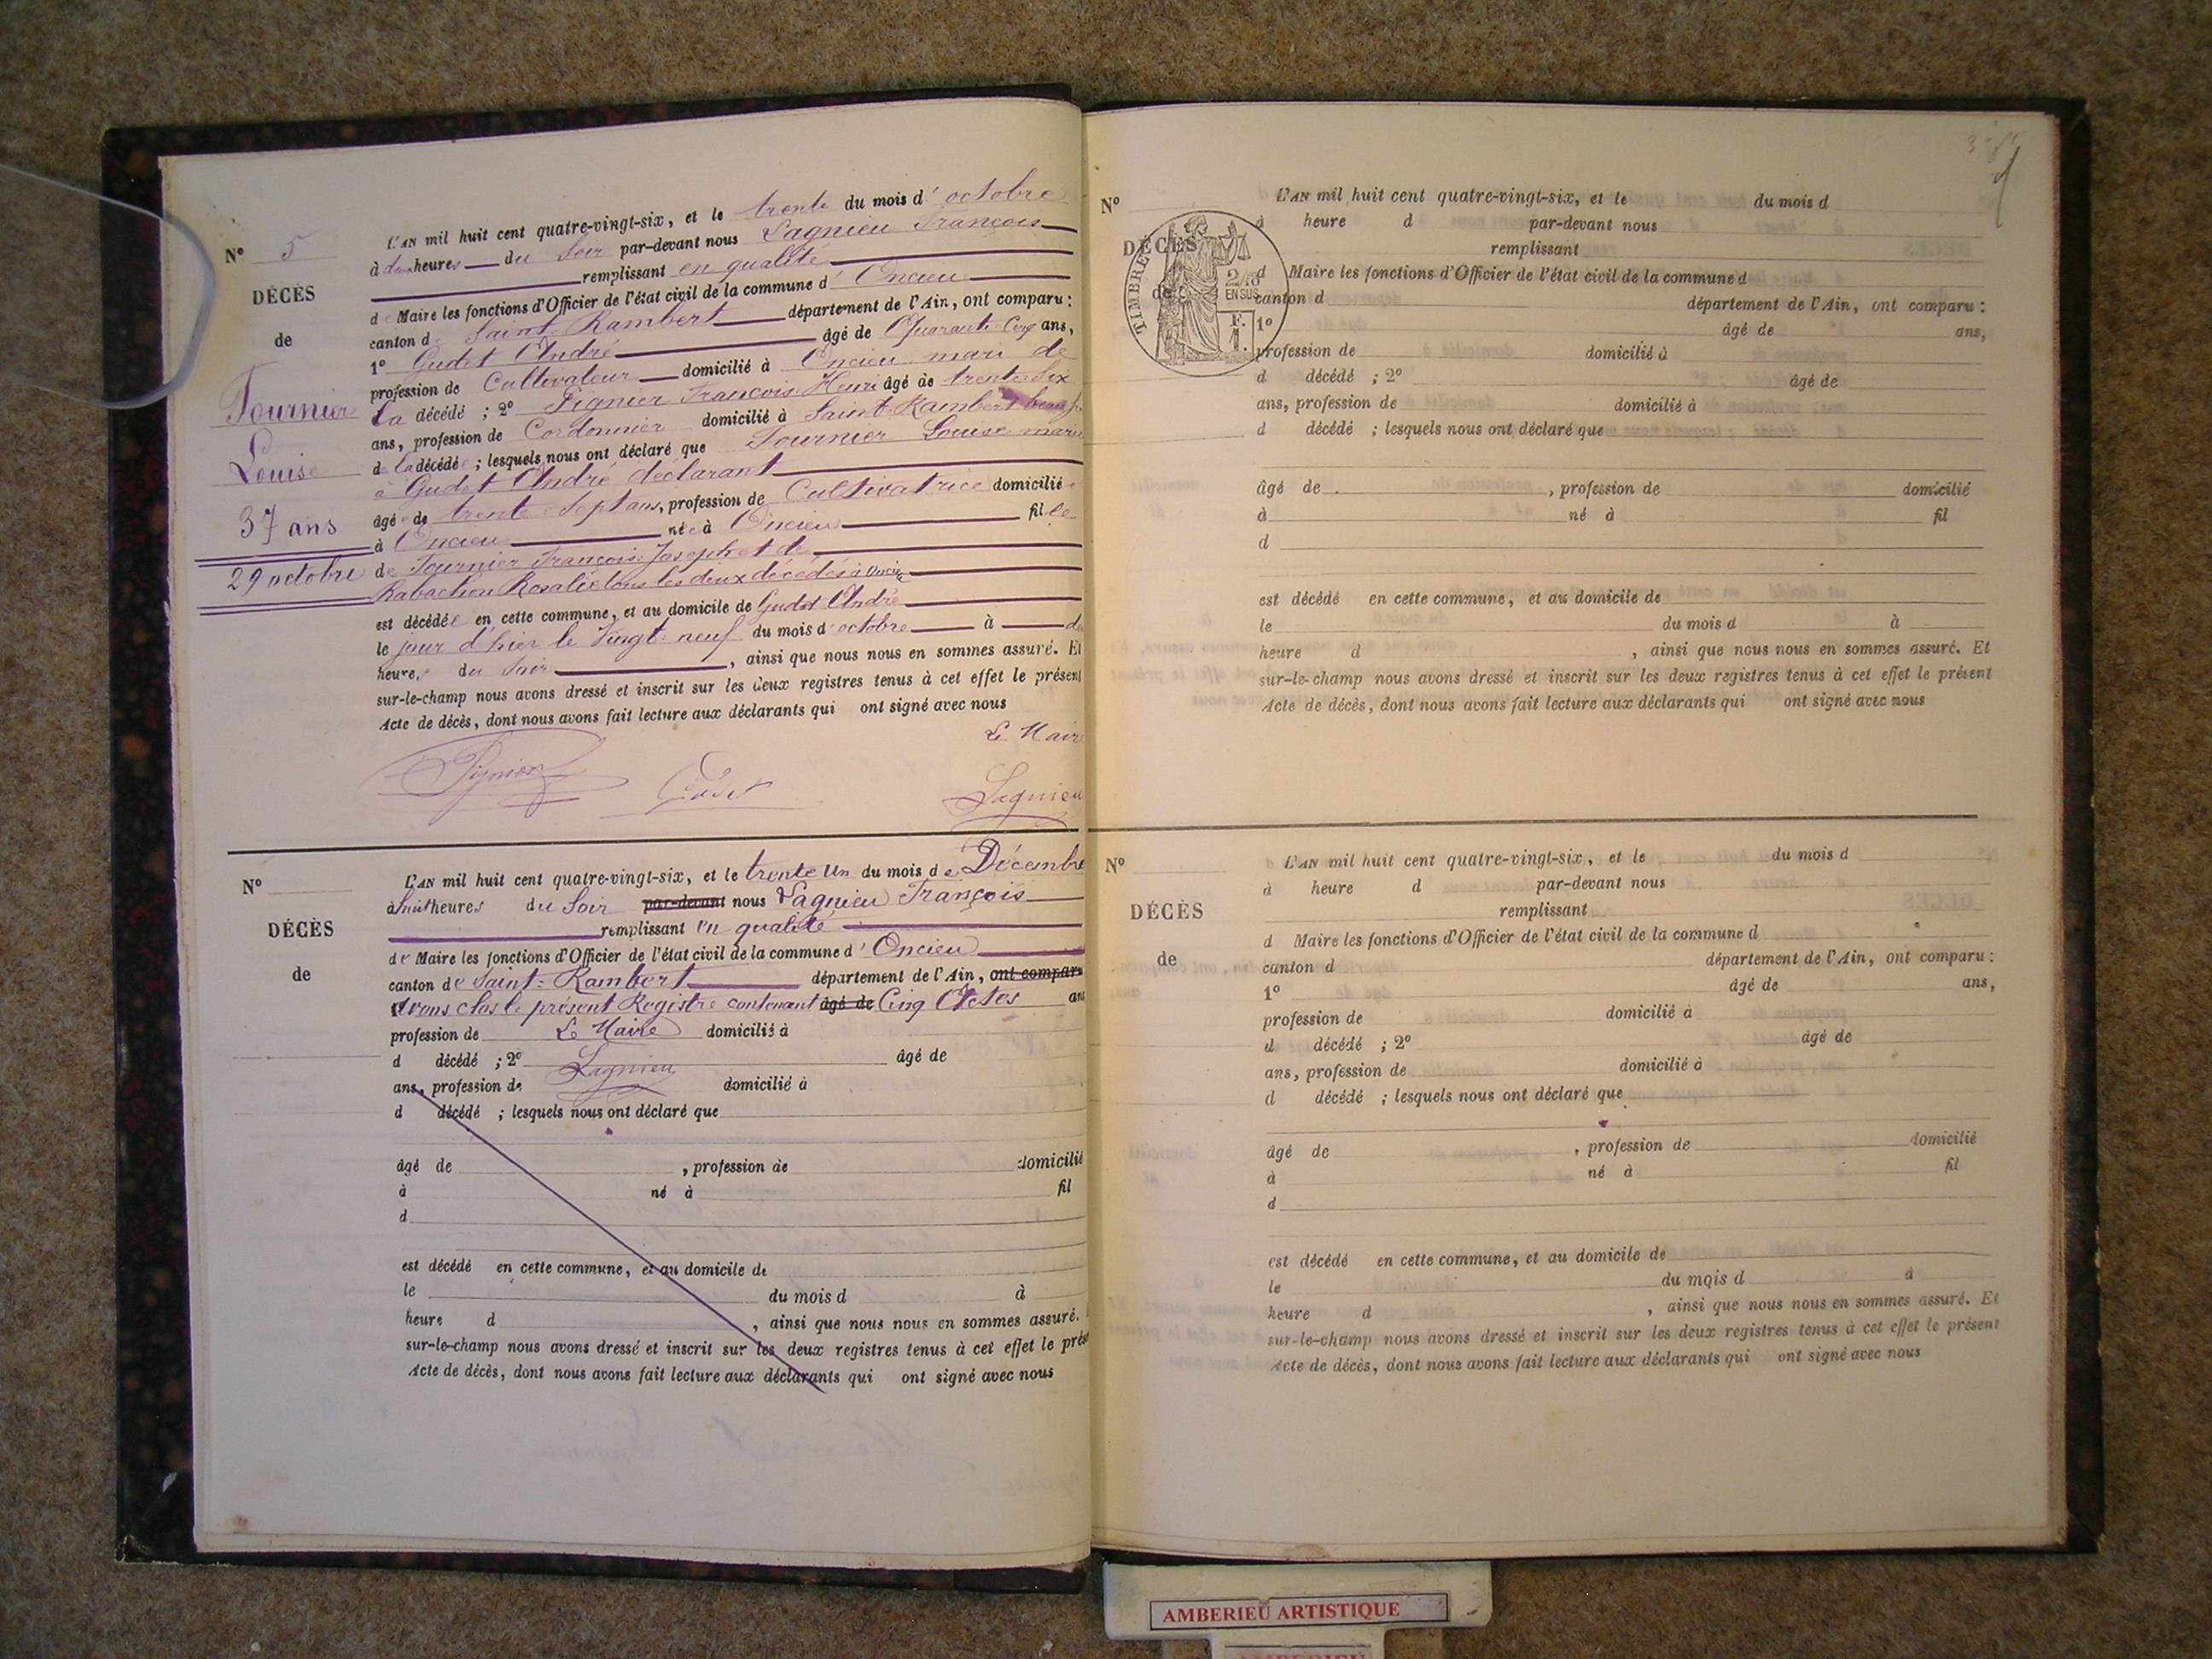 L'AN mil huit cent quatre-vingt-six, et le trente du mois d'octobre
à deux heures du Soir par-devant nous Lagnieu François
remplissant en qualité
de Maire les fonctions d'Officier de l'état civil de la commune d'Oncieu
canton de Saint-Rambert département de l'Ain, ont comparu :
1º Gudet André âgé de Quarante Cinq ans,
profession de Cultivateur domicilié à Oncieu mari de
La décédé ; 2º François Henri âgé de trente Six
ans, profession de Cordonnier domicilié à Saint-Rambert
de la décédée ; lesquels nous ont déclaré que Tournier Louise
à Gudet André déclarant
âgé de trente Sept ans, profession de Cultivatrice domicilié
à Oncieu née à Oncieu fille
de Tournier François Joseph et de
Rosalie tous les deux décédés à Oncieu
est décédée en cette commune, et au domicile de Gudet André
le jour d'hier le Vingt-neuf du mois d'octobre à
heures du Soir , ainsi que nous nous en sommes assuré. Et
sur-le-champ nous avons dressé et inscrit sur les deux registres tenus à cet effet le présent
Acte de décès, dont nous avons fait lecture aux déclarants qui ont signé avec nous
Le Maire
Gudet Lagnieu
Nº 5
DÉCÈS
de
Tournier
Louise
37 ans
29 octobre
Nº
DÉCÈS
de
L'AN mil huit cent quatre-vingt-six, et le trente un du mois de Décembre
à huit heures du Soir par-devant nous Lagnieu François
remplissant en qualité
de Maire les fonctions d'Officier de l'état civil de la commune d'Oncieu
canton de Saint-Rambert département de l'Ain, ont comparu
Avons clos le présent Registre contenant âgé de Cinq Actes ans
profession de Le Maire domicilié à
d décédé ; 2º Lagnieu âgé de
ans, profession de domicilié à
d décédé ; lesquels nous ont déclaré que
âgé de , profession de domicilié
à né à fil
d
est décédé en cette commune, et au domicile de
le du mois d à
heure d , ainsi que nous nous en sommes assuré.
sur-le-champ nous avons dressé et inscrit sur les deux registres tenus à cet effet le prés
Acte de décès, dont nous avons fait lecture aux déclarants qui ont signé avec nous
Nº
DÉCÈS
de
TIMBRE
2/10
EN SUS
F.
1.
L'AN mil huit cent quatre-vingt-six, et le du mois d
à heure d par-devant nous
remplissant
d Maire les fonctions d'Officier de l'état civil de la commune d
canton d département de l'Ain, ont comparu :
1º âgé de ans,
profession de domicilié à
d décédé ; 2º âgé de
ans, profession de domicilié à
d décédé ; lesquels nous ont déclaré que
âgé de , profession de domicilié
à né à fil
d
est décédé en cette commune, et au domicile de
le du mois d à
heure d , ainsi que nous nous en sommes assuré. Et
sur-le-champ nous avons dressé et inscrit sur les deux registres tenus à cet effet le présent
Acte de décès, dont nous avons fait lecture aux déclarants qui ont signé avec nous
Nº
DÉCÈS
de
L'AN mil huit cent quatre-vingt-six, et le du mois d
à heure d par-devant nous
remplissant
d Maire les fonctions d'Officier de l'état civil de la commune d
canton d département de l'Ain, ont comparu :
1º âgé de ans,
profession de domicilié à
d décédé ; 2º âgé de
ans, profession de domicilié à
d décédé ; lesquels nous ont déclaré que
âgé de , profession de domicilié
à né à fil
d
est décédé en cette commune, et au domicile de
le du mois d à
heure d , ainsi que nous nous en sommes assuré. Et
sur-le-champ nous avons dressé et inscrit sur les deux registres tenus à cet effet le présent
Acte de décès, dont nous avons fait lecture aux déclarants qui ont signé avec nous
AMBERIEU ARTISTIQUE
AMBERIEU